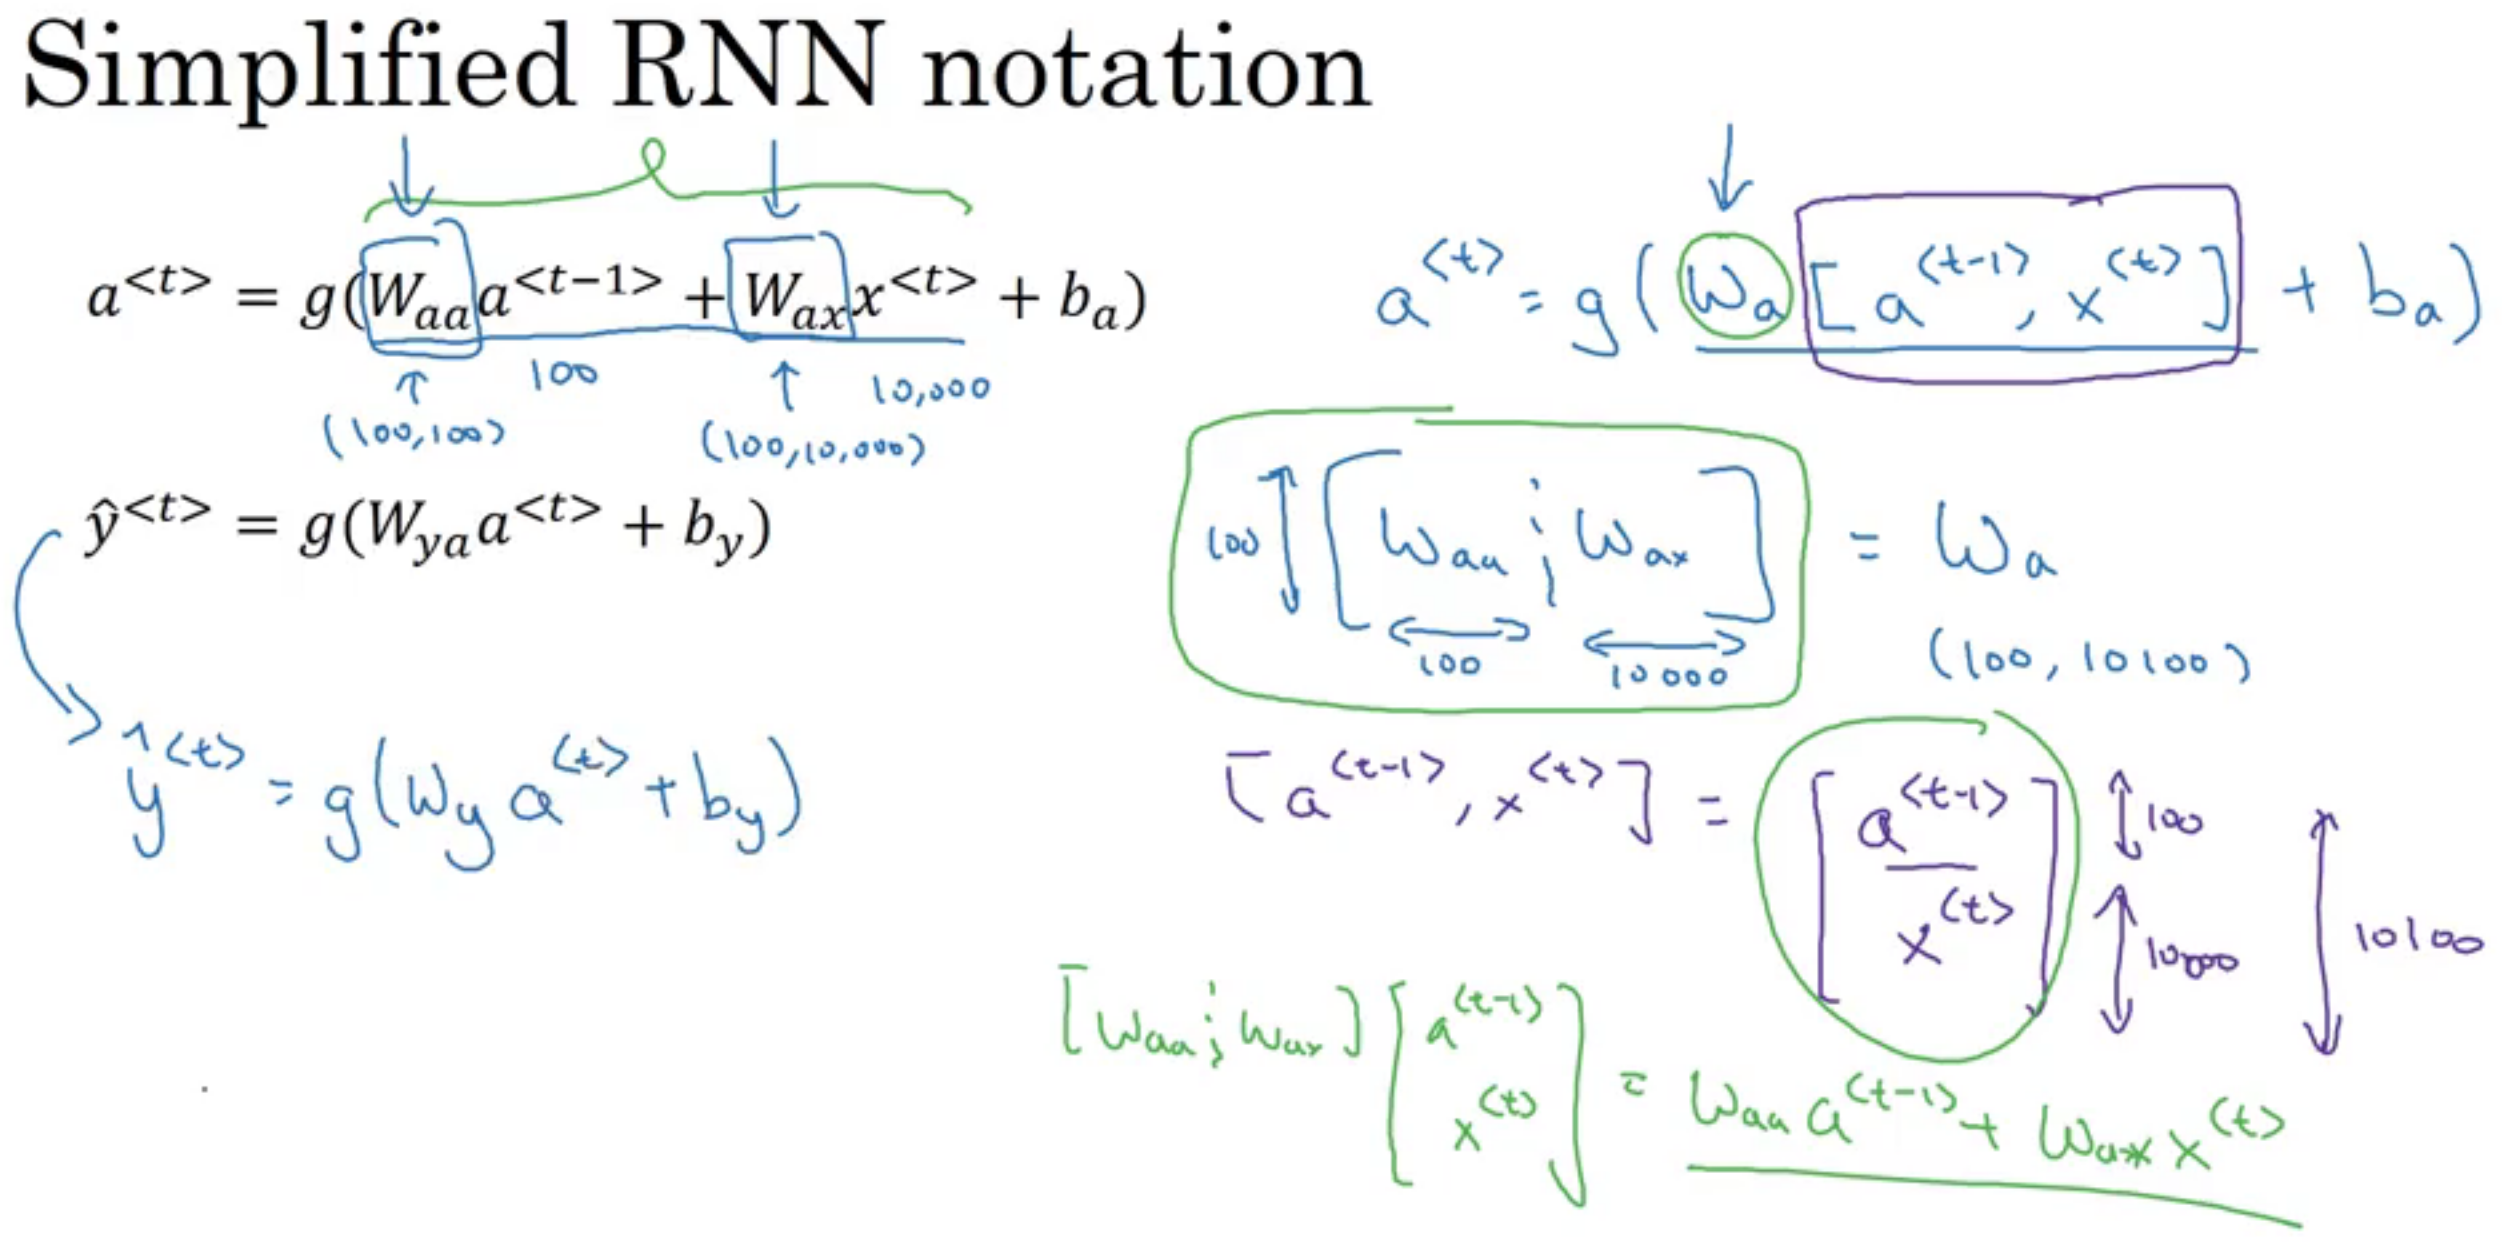 Simplified RNN notation
a<t> = g(Waa a<t−1> + Wax x<t> + ba)
100
10,000
(100,100)
(100,10,000)
ŷ<t> = g(Wya a<t> + by)
ŷ<t> = g(Wy a<t> + by)
a<t> = g(Wa [a<t-1>, x<t>] + ba)
100 [Waa ¦ Wax] = Wa
100 10000
(100, 10100)
[a<t-1>, x<t>] = [a<t-1>
x<t>]
100
10000
10100
[Waa ¦ Wax] [a<t-1>
x<t>] = Waa a<t-1> + Wax x<t>